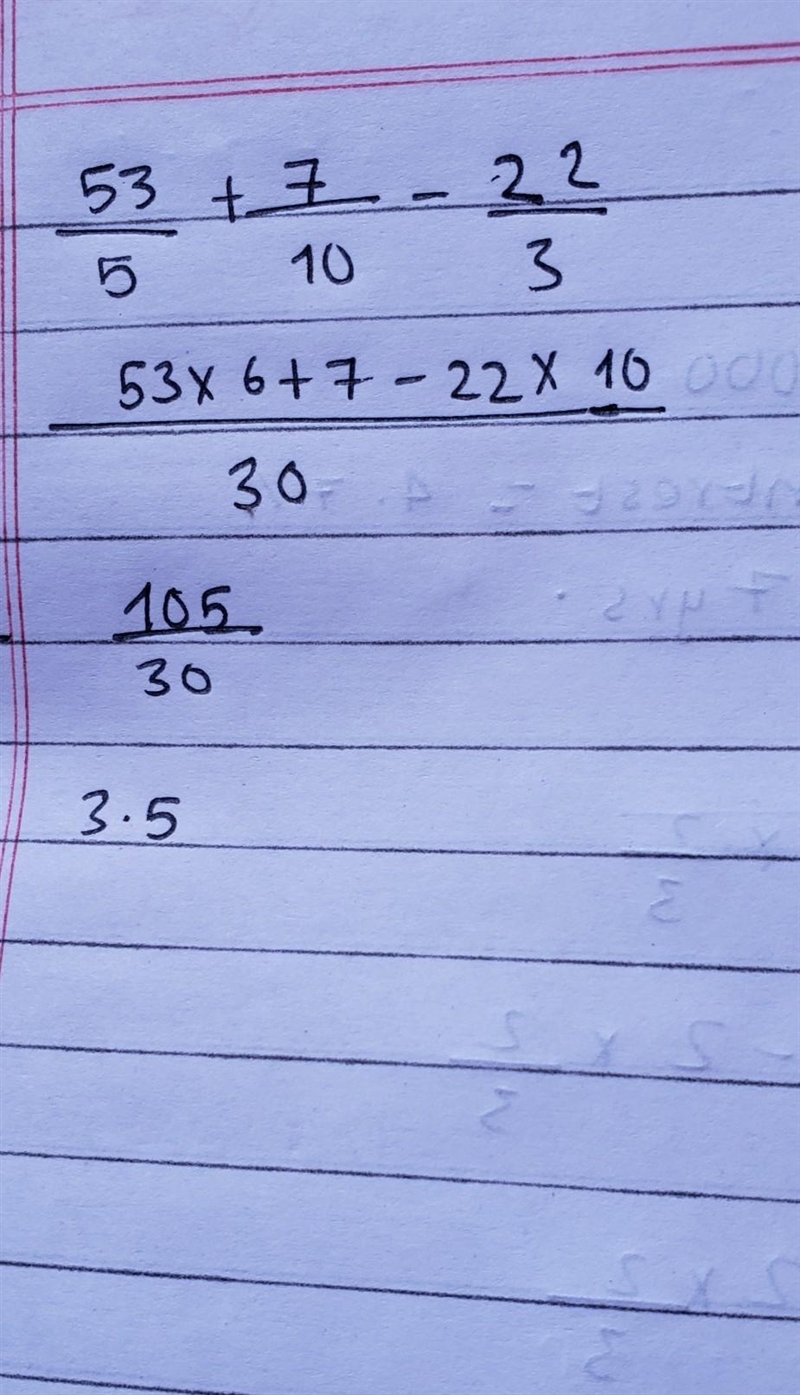 53/5 + 7/10 - 22/3
53 x 6 + 7 - 22 x 10
30
105
30
3.5